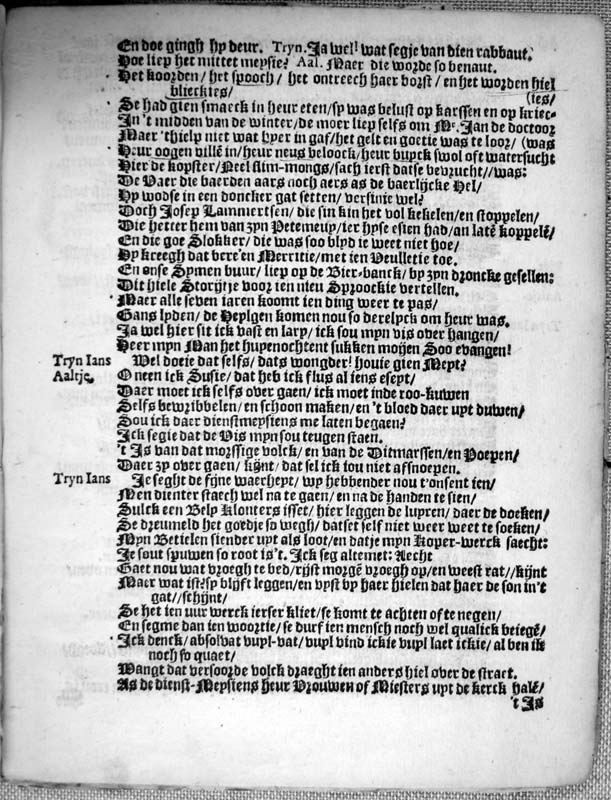 En doe gingh hy deur. Tryn. Ja wel! wat segje van dien rabbaut.
Hoe liep het mittet meysie? Aal. Maer die worde so benaut.
Het koorden/ het spooch/ het ontreech haer borst/ en het worden hiel
blieckies/ (ies/
Se had gien smaeck in heur eten/ sy was belust op karssen en op kriec-
In 't midden van de winter/ de moer liep selfs om Mr. Jan de doctoor
Maer 't hielp niet wat hyer in gaf/ het gelt en goetie was te loor/ (was
Heur oogen villē in/ heur neus beloock/ heur buyck swol ofse watersucht
Hier de kopster/ Neel slim-mongs/ sach ierst datse bevrucht//was:
De Vaer die baerden aars noch aers as de vaerlijcke Hel/
Hy wodse in een doncker gat setten/ versinje wel?
Doch Josep Lammertsen/ die sin kin het vol kekelen/ en stoppelen/
Die hetter hem van zyn Petemeuy/ ier hyse esien had/ an latē koppelē/
En die goe Slokker/ die was soo blyd ie weet niet hoe/
Hy kreegh dat vere'en Merritie/ met ien Veulletie toe.
En onse Symen buur/ liep op de Bier-banck/ by zyn droncke gesellen:
Dit hiele Storijtje voor ien nieu Sproockie vertellen.
Maer alle seven iaren koomt ien ding weer te pas/
Gans lyden/ de Heylgen komen nou so derelyck om heur was.
Ja wel hier sit ick vast en lary/ ick sou myn vis over hangen/
Heer myn Man het hupenochtent sukken moyen Soo evangen!
Tryn Ians Wel doeje dat selfs/ dats wongder! houje gien Meyt?
Aaltje. O neen ick Susie/ dat heb ick flus al iens eseyt/
Daer moet ick selfs over gaen/ ick moet inde roo-kuwen
Selfs bewribbelen/ en schoon maken/ en 't bloed daer uyt duwen/
Sou ick daer dienstmeysiens me laten begaen?
Ick segje dat de Vis myn sou teugen staen.
't Is van dat morssige volck/ en van de Ditmarssen/ en Poepen/
Daer zy over gaen/ kynt/ dat sel ick iou niet afsnoepen.
Tryn Ians Je seght de fyne waerheyt/ wy hebbender nou t'onsent ien/
Men dienter staech wel na te gaen/ en na de handen te sien/
Sulck een Bely Klonters isset/ hier leggen de luyren/ daer de doeken/
Se dreumeld het goedje so wegh/ datset self niet weer weet te soeken/
Myn Betielen siender uyt als loot/ en datje myn Koper-werck saecht:
Je sout spuwen so root is't. Ick seg altemet: Aecht
Gaet nou wat vroegh te bed/ ryst morgē vroegh op/ en weest rat//kijnt
Maer wat ist? sy blyft leggen/ en vyst by haer hielen dat haer de son in't
gat//schijnt/
Se het ien uur werck ierser kliet/ se komt te achten of te negen/
En segme dan ien woortie/ se durf ien mensch noch wel qualick beiegē/
Ick denck/ absolvat vuyl-vat/ vuyl vind ickie vuyl laet ickie/ al ben ik
noch so quaet/
Wangt dat versoorde volck draeght ien anders hiel over de straet.
As de dienst-Meysiens heur Vrouwen of Miesters uyt de kerck halē/
't Is